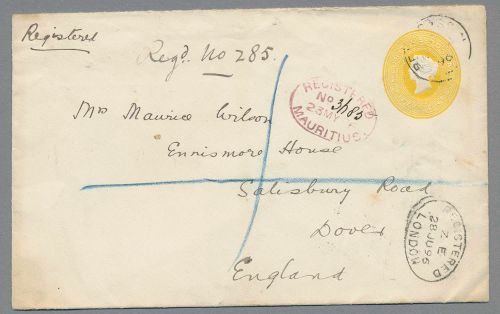 Registered
Regd. No 285.
REGISTERED
No 3/185
23 MY
MAURITIUS.
Mrs Maurice Wilson
Ennismore House
Salisbury Road
Dover
England
REGISTERED
Z E
28 JU 96
LONDON